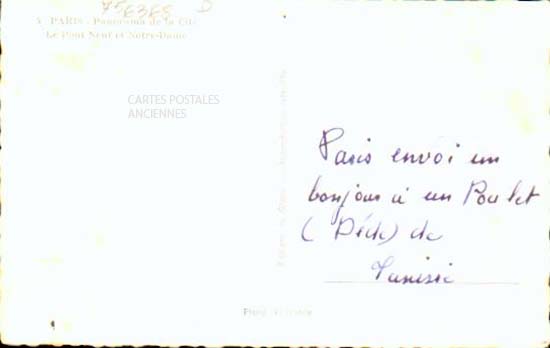 756365 D
5 PARIS - Panorama de la Cité
Le Pont Neuf et Notre-Dame
CARTES POSTALES
ANCIENNES
Paris envoi un
bonjour à un Poulet
(Dédé) de
Tunisie